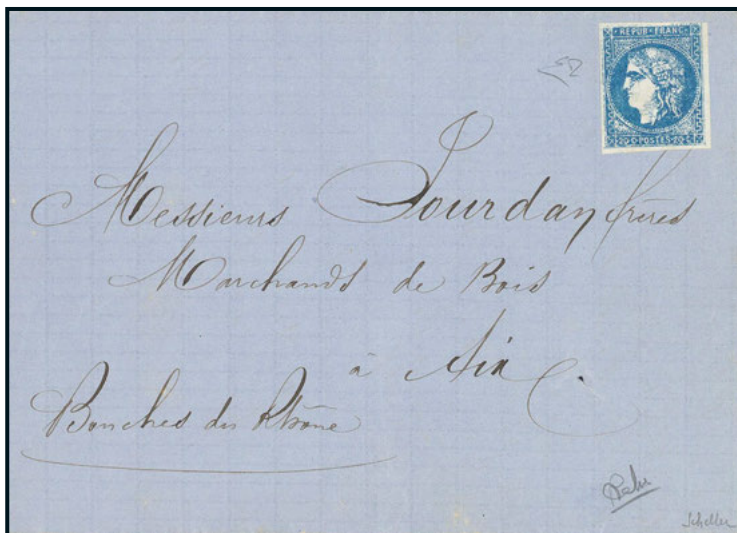 REPUB FRANC
20 C POSTES 20 C
Messieurs Jourdan frères
Marchands de Bois
à Aix
Bouches du Rhône
Scheller